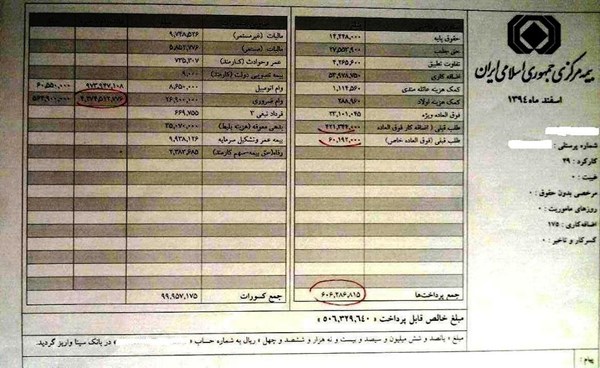 بیمه مرکزی جمهوری اسلامی ایران
اسفند ماه ۱۳۹۴
شماره پرسنلی :
کارکرد : ۲۹
غیبت : ۰
مرخصی بدون حقوق : ۰
روزهای ماموریت : ۰
اضافه‌کاری : ۱۷۵
کسرکار و تاخیر : ۰
حقوق پایه ۱۴,۲۲۸,۰۰۰
حق جلب ۲۷,۵۵۳,۹۰۰
تفاوت تطبیق ۴,۲۶۵,۶۰۰
اضافه کاری ۵۳,۹۷۸,۷۵۰
کمک هزینه عائله مندی ۱,۱۱۴,۵۶۰
کمک هزینه اولاد ۲۸۸,۹۶۰
فوق العاده ویژه ۲۳,۱۰۱,۰۴۵
طلب قبلی ( اضافه کار فوق العاده ۲۲۱,۳۴۴,۰۰۰
طلب قبلی (فوق العاده خاص) ۶۰,۱۹۲,۰۰۰
جمع پرداخت‌ها ۶۰۶,۲۸۶,۸۱۵
مالیات (غیرمستمر) ۹,۷۴۸,۵۲۶
مالیات (مستمر) ۵,۸۵۲,۷۷۶
عمر وحوادث (کارمند) ۷۳۵,۳۰۷
بیمه تندرستی دولت (کارمند) ۹,۰۰۰
وام اتومبیل ۸,۶۵۰,۰۰۰ ۹۷۳,۹۴۷,۱۰۸ ۶۰,۵۵۰,۰۰۰
وام ضروری ۲۶,۹۰۰,۰۰۰ ۴,۳۷۴,۵۱۲,۷۷۶ ۵۶۴,۹۰۱,۰۰۰
قرارداد تبعی ۳ ۶۶۹,۷۵۵
بدهی معوقه (هزینه بلیط) ۳۵,۰۷۰,۰۰۰
بیمه عمر وتشکیل سرمایه ۹,۹۳۸,۱۲۶
وفا(حق بیمه-سهم کارمند) ۲,۳۸۳,۶۸۵
جمع کسورات ۹۹,۹۵۷,۱۷۵
مبلغ خالص قابل پرداخت : ۵۰۶,۳۲۹,۶۴۰
مبلغ « پانصد و شش میلیون و سیصد و بیست و نه هزار و ششصد و چهل » ریال به شماره حساب « » در بانک سینا واریز گردید.
پیام :